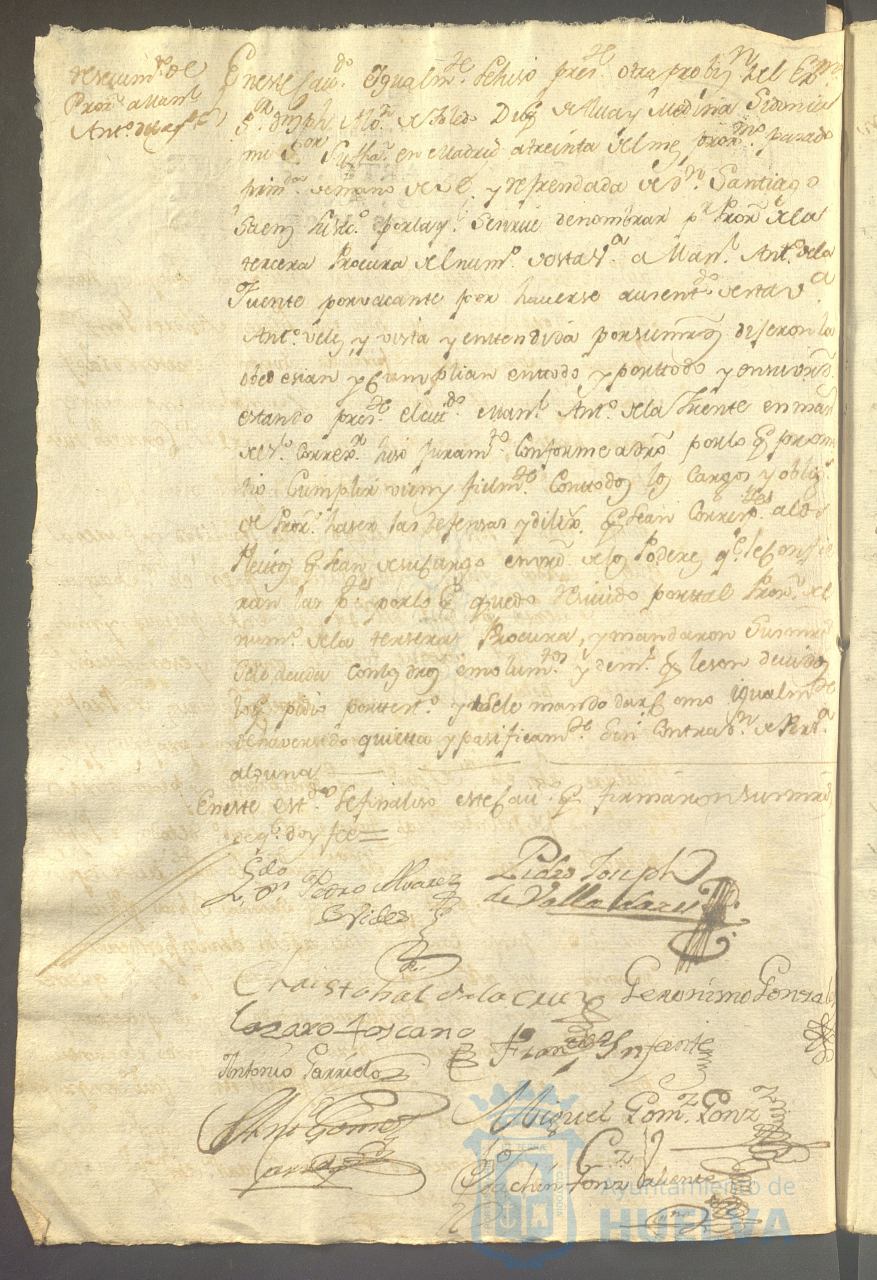 Resevim.to de
Pror. a Manl.
Ant.o de la f.te
En este Cav.do Igualm.te se hiso pres.te otra probis.n del Ex.mo
S.or dn. Jph Alv.z de Toledo Duq. de Alva y Medina Sidonia
mi S.or su fha. en Madrid a treinta del mes prox.mo pasado
firm.da de mano de S.E. y refrendada de Dn. Santiago
Saenz su Sec.o por la q.l se sirve de nombrar p.r Pror. de la
tercera Procura del num.o de esta V.a a Man.l Ant.o de la
Fuente por vacante por haverse ausent.do de esta V.a
Ant.o Velez y vista y entendida por sus mrds. dijeron la
obedesian y Cumplian en todo y por todo y en su virtd.
estando pres.te el cit.do Man.l Ant.o de la Fuente en man.
del Sr. Correx.r hiso Juram.to Conforme a dro. por lo q. prome
tio Cumplir vien y fielm.te Con todos los Cargos y oblig.s
de Pror. haser las defensas y dilix.s q. sean Corresp.tes a los
Pleitos q. sean de su Cargo en vrd. de los Poderes q.e le Confie
ran las p.tes por lo q. quedo resevido por tal Pror. del
num.o de la tersera Procura, y mandaron sus mrds.
se le acuda con los dros. emolum.tos y dem.s q. le son devidos
lo q. pidio por test.o y se le mando dar Como igualm.te
de haver sido quieta y pasificam.te sin Contradn. de Pers.a
alguna
En este est.do se finaliso este Cav.o q. firmaron sus mrds.
de q. doy fee=
L.do Dn. Pedro Alvarez
Pedro Joseph
de Valladares
Christobal de la Cruz
Geronimo Gonzal
Lazaro toscano
Fran.co Infante
Antonio Garrido
Ant.o Gomez
Miguel Gom.z Gonz.z
Juachin Gonz.z Valiente
Ayuntamiento de
HUELVA